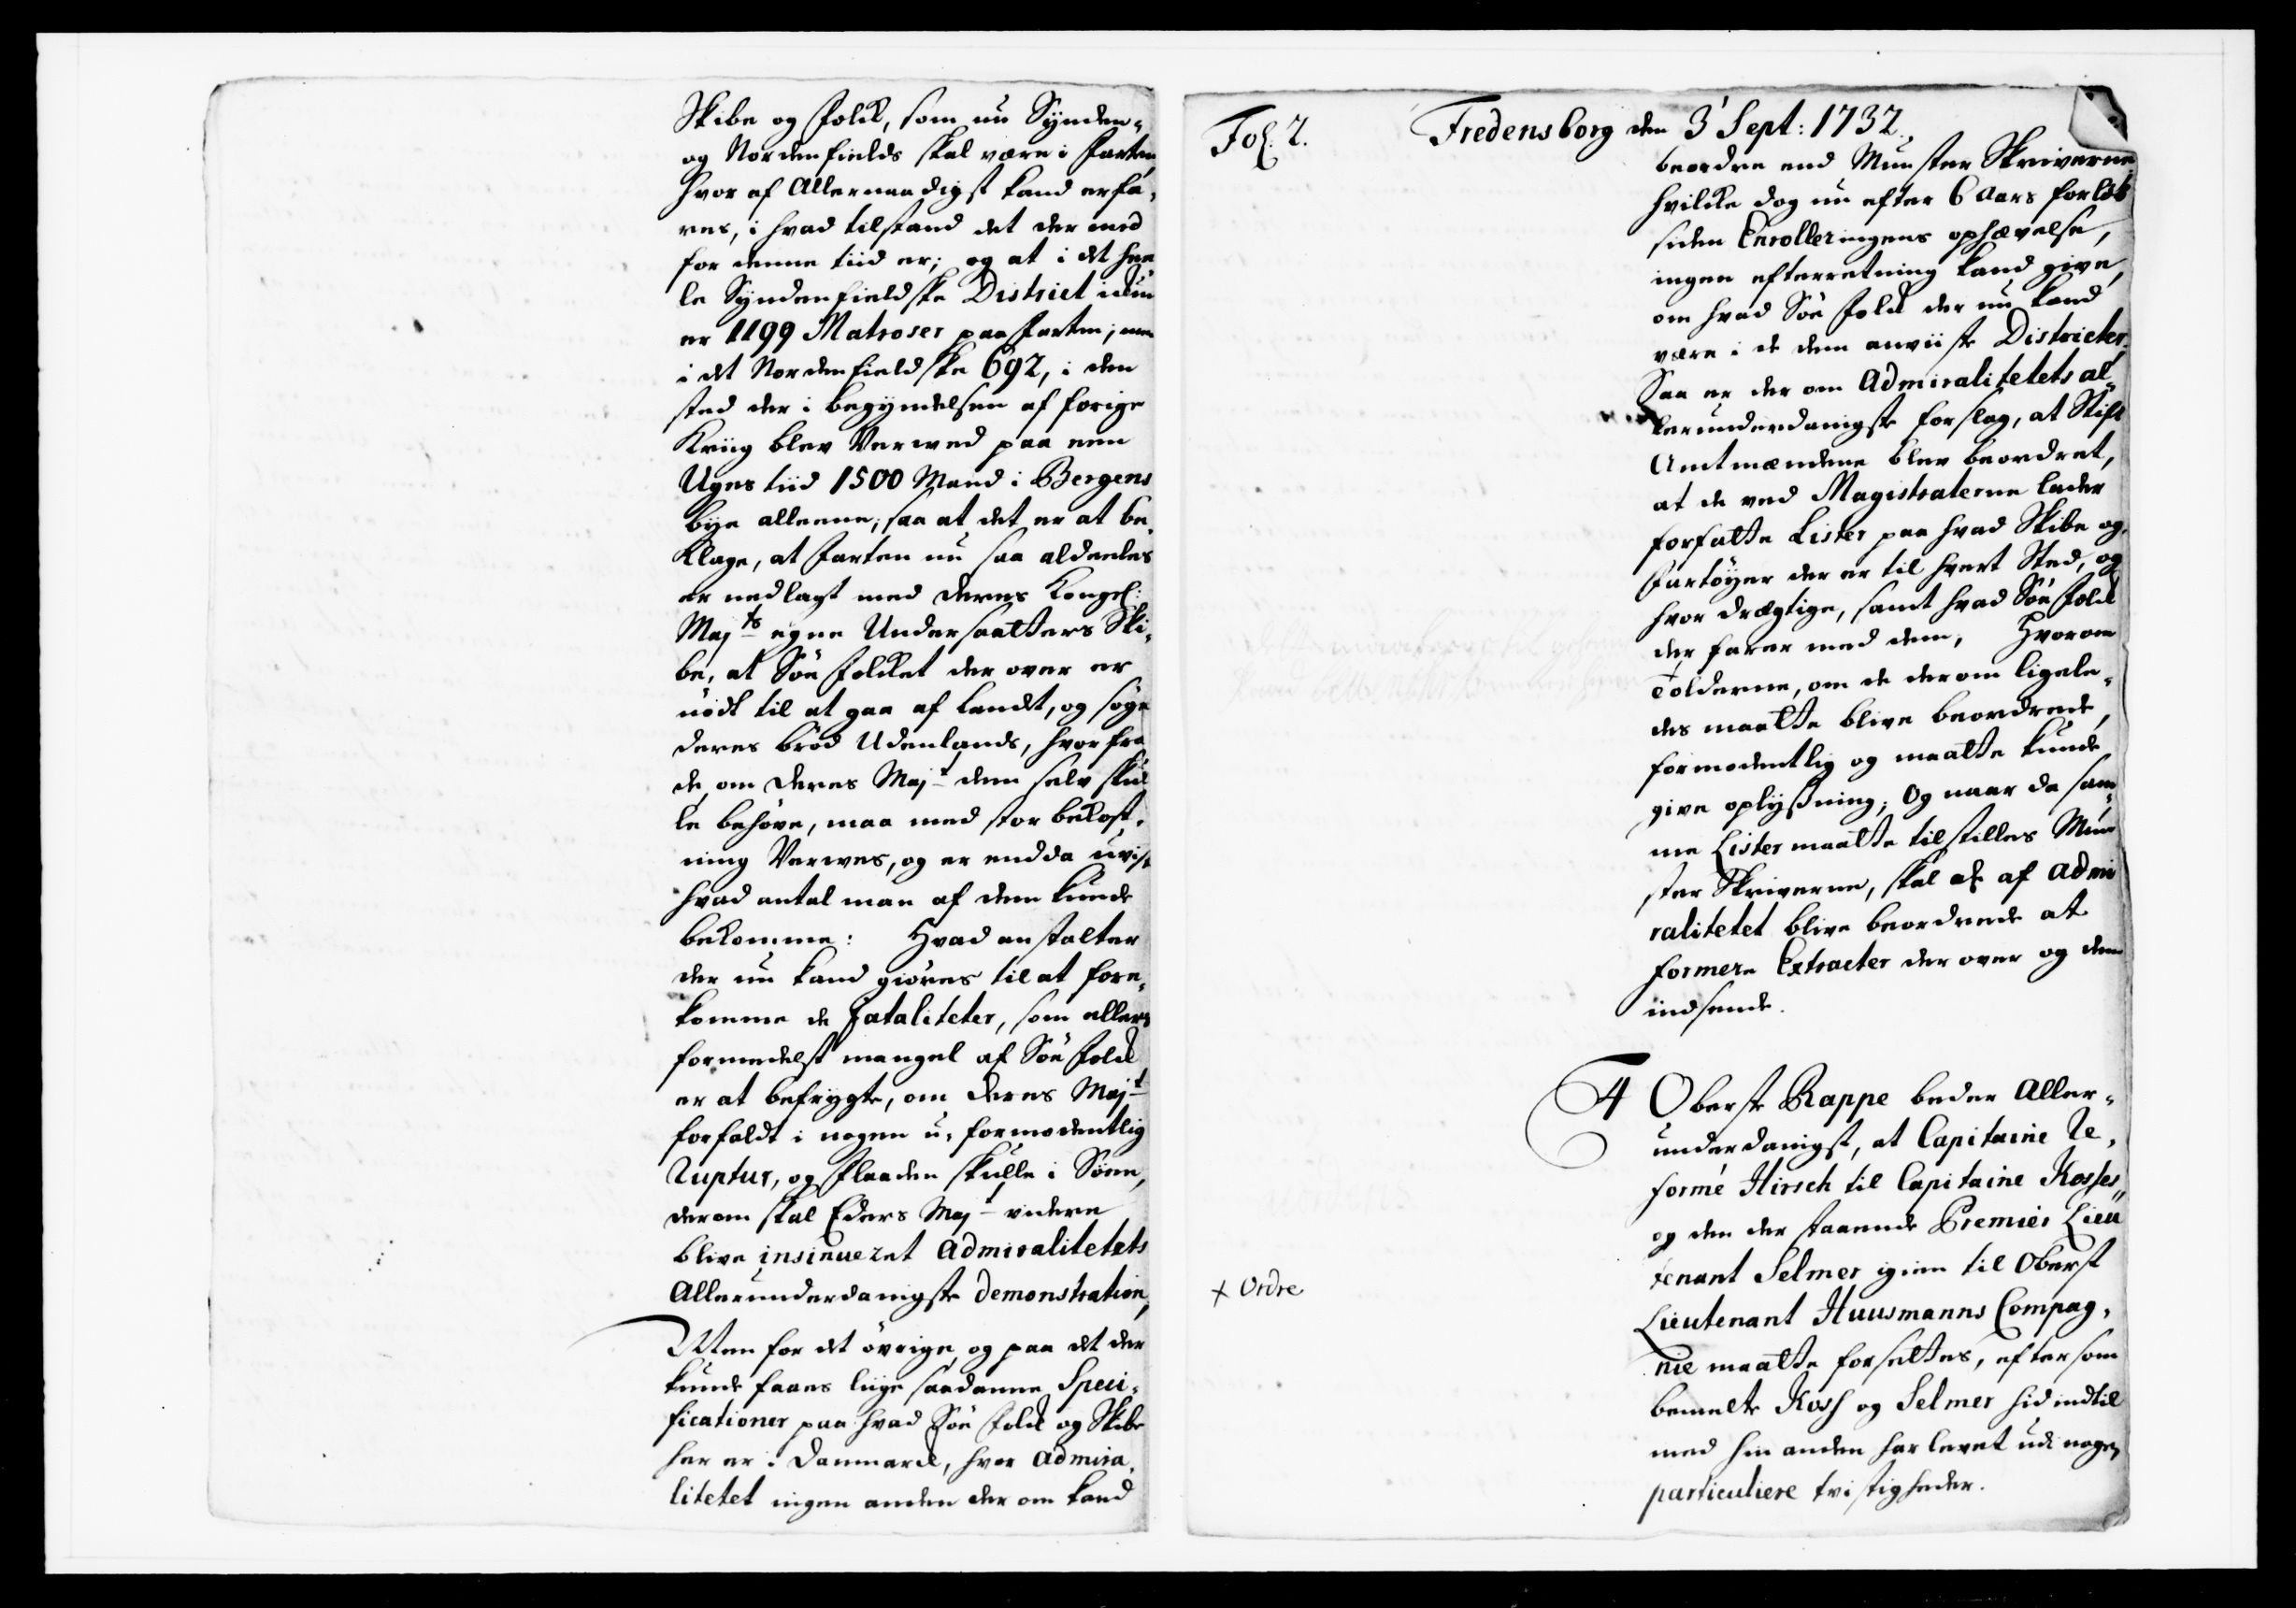 Skibe og Folck, som nu Synden-
og Nordenfields skal være i Farten,
hvor af Allernaadigst kand erfa-
res, i hvad tilstand det der med
for denne tiid er; og at i det hee
le Syndenfieldske District ickun
er 1199 Matroser paa Farten; men
i det Nordenfieldske 692, i den
sted der i begyndelsen af forige
Kriig blev Verved paa een
Uges tiid 1500 Mand i Bergens
bye alleene; saa at det er at be-
klage, at Farten nu saa aldeeles
er nedlagt med Deres Kongel:
Majts egne Undersaatters Ski-
be, at Söe Folcket der over er
nödt til at gaa af Landet, og söge
deres bröd Udenlands, hvor fra
de, om Deres Majt dem selv skul
le behöve, maa med stor bekost-
ning Verves, og er endda uvist
hvad antal man af dem kunde
bekomme: Hvad anstalter
der nu kand giöres til at fore-
komme de Fataliteter, som ellers
formedelst mangel af Söe Folck
er at befrygte, om Deres Majt
forfaldt i nogen u-formodentlig
Ruptur, og Flaaden skulle i Söen,
derom skal Eders Majt videre
blive insinueret Admiralitetets
Allerunderdanigste demonstration,
Men for det övrige, og paa det der
kunde faaes liige saadanne Speci-
ficationer paa hvad Söe Folck og Skibe
her er i Danmarck, hvor Admira-
litetet ingen anden der om kand
Fol. 2.
Fredensborg den 3' Sept: 1732.
beordre end Munster Skriverne,
hvilcke dog nu efter 6 Aars forlöb
siden Enrolleringens ophævelse,
ingen efterretning kand give,
om hvad Söe Folck der nu kand
være i de dem anviiste Districter,
Saa er der om Admiralitetets al-
lerunderdanigste forslag, at Stift
Amtmændene blev beordret,
at de ved Magistraterne lader
forfatte Lister paa hvad Skibe og
Fartöyer der er til hvert Sted, og
hvor drægtige, samt hvad Söe Folck
der farer med dem, Hvorom
Tolderne, om de derom ligele-
des maatte blive beordrede,
formodentlig og maatte kunde
give oplysning; Og naar da sam-
me Lister maatte tilstilles Mun
ster Skriverne, skal de af Admi
ralitetet blive beordrede at
formere Extracter der over og dem
indsende.
4 Oberste Rappe beder Aller-
underdanigst, at Capitaine Re-
formé Hirsch til Capitaine Kosses,
og den der staaende Premier Lieu
tenant Selmer igien til Oberst
Lieutenant Huusmanns Compag-
nie maatte forsettes, efter som
bemelte Koss og Selmer hid indtil
med hin anden har levet udi nogen
particuliere tvistigheder.
+ Ordre